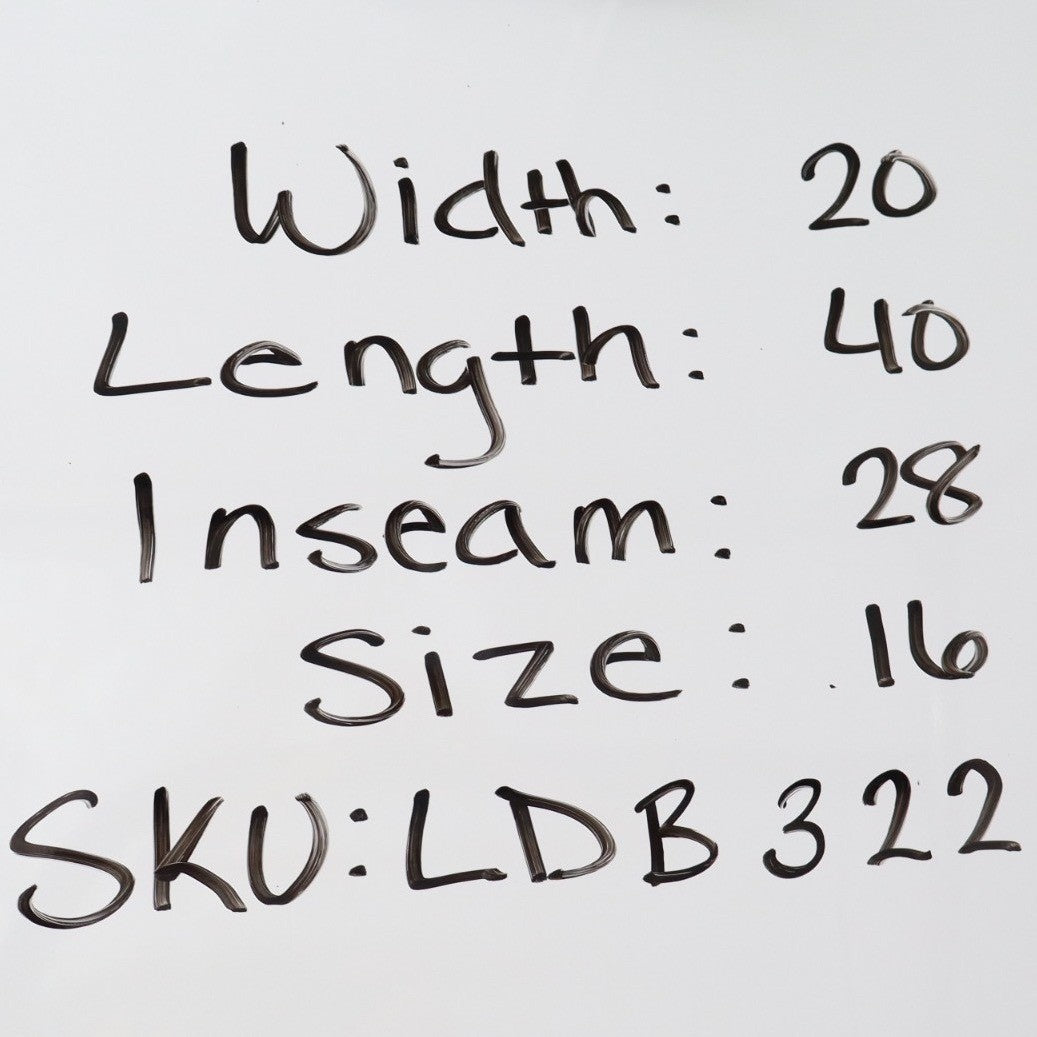 Width: 20
Length: 40
Inseam: 28
Size: 16
SKU: LDB322